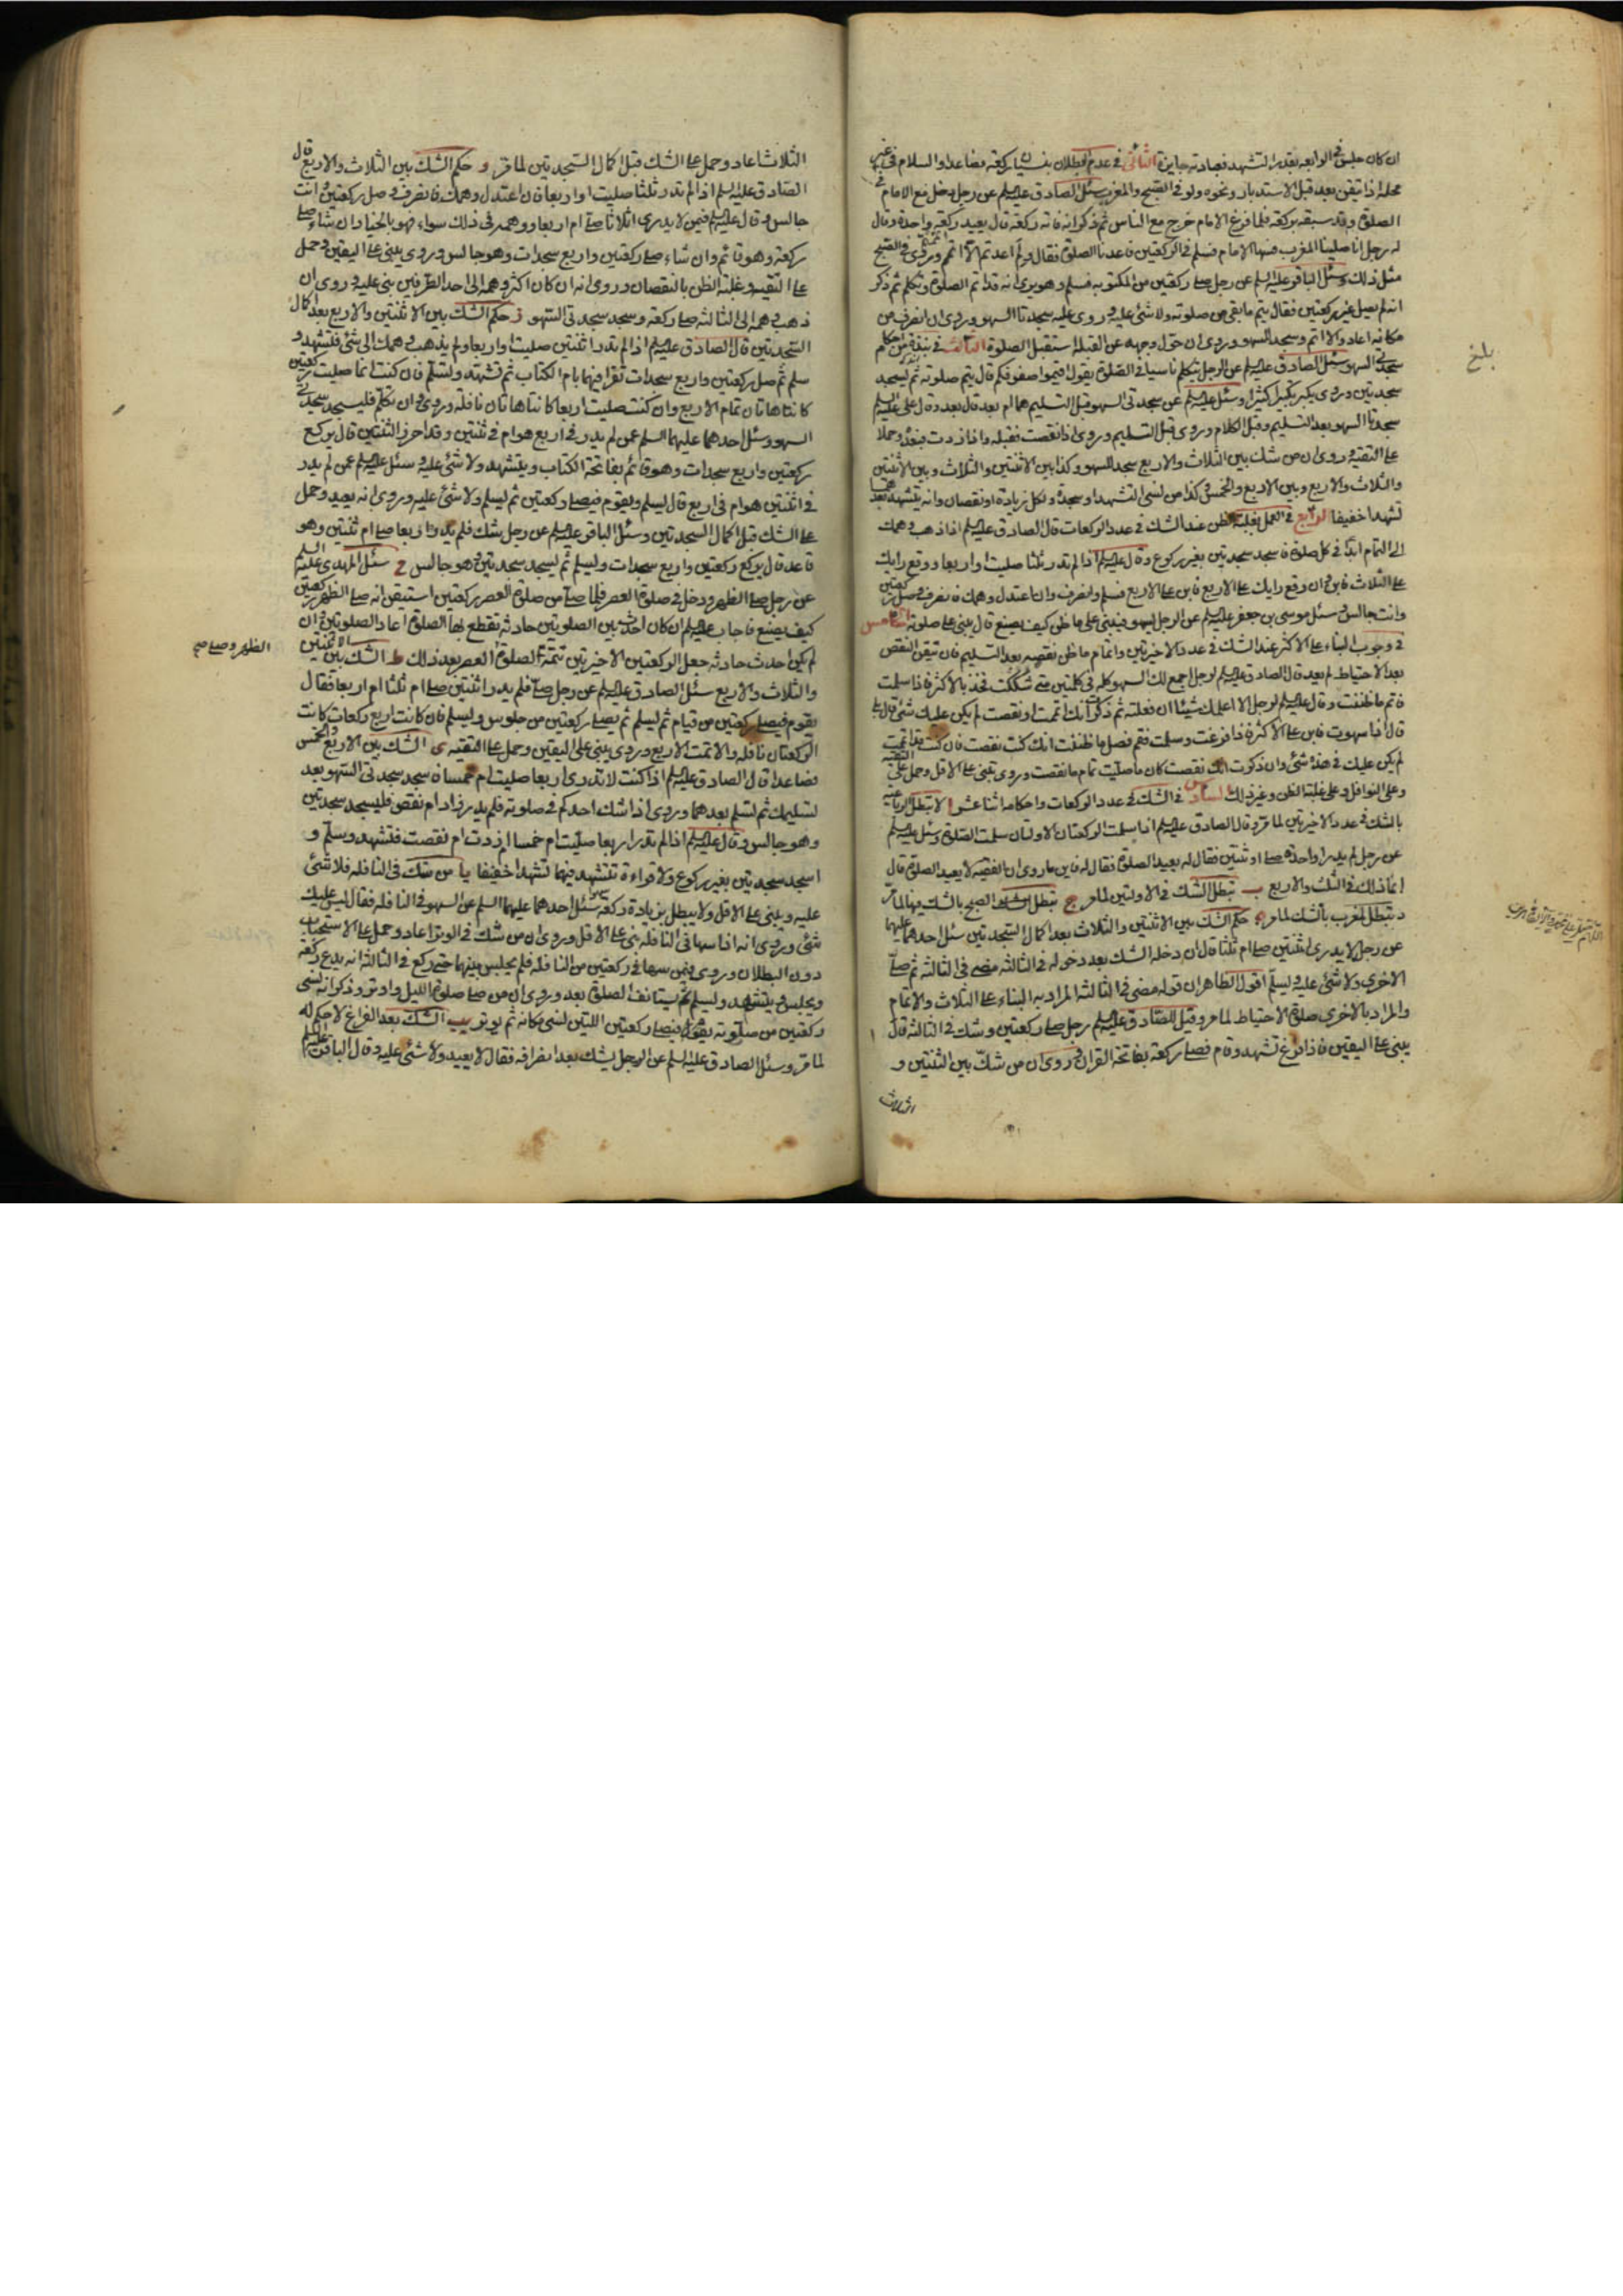 ان كان جلس في الرابعة بقدر التشهد فعبادته جايزة الثاني في عدم البطلان بنسيان ركعة فصاعدا والسلام في غير
محله اذا تيقن بعد قبل الاستدبار ونحوه ولو في الصبح والمغرب سئل الصادق عليه السلم عن رجل دخل مع الامام في
الصلوة وقد سبقه بركعة فلما فرغ الامام خرج مع الناس ثم ذكر انه فاته ركعة قال يعيد ركعة واحدة وقال
له رجل انا صلينا المغرب فسها الامام فسلم في الركعتين فاعدنا الصلوة فقال ولم اعدتم الا اتممتم وروي في الصبح
مثل ذلك وسئل الباقر عليه السلم عن رجل صلى ركعتين من المكتوبة فسلم وهو يرى انه قد اتم الصلوة وتكلم ثم ذكر
انه لم يصل غير ركعتين فقال يتم ما بقي من صلوته ولا شئ عليه وروي عليه سجدتا السهو وروي ان انصرف من
مكانه اعاد والا اتم وسجد للسهو وروي ان حول وجهه عن القبلة استقبل الصلوة الثالث في نبذة من احكام
سجدتي السهو سئل الصادق عليه السلم عن الرجل يتكلم ناسيا في الصلوة يقول اقيموا صفوفكم قال يتم صلوته ثم يسجد
سجدتين وروي يكبر تكبيرا كثيرا وسئل عليه السلم عن سجدتي السهو قبل التسليم هما ام بعد قال بعد وقال علي عليه السلم
سجدتا السهو بعد التسليم وقبل الكلام وروي قبل التسليم وروي اذا نقصت فقبله واذا زدت فبعده وحملا
على التقية وروي ان من شك بين الثلاث والاربع سجد للسهو وكذا بين الاثنتين والثلاث وبين الاثنتين
والثلاث والاربع وبين الاربع والخمس وكذا من نسى التشهد او سجدة ولكل زيادة او نقصان وانه يتشهد بعدهما
تشهدا خفيفا الرابع في العمل بغلبة الظن عند الشك في عدد الركعات قال الصادق عليه السلم اذا ذهب وهمك
الى التمام ابدا في كل صلوة فاسجد سجدتين بغير ركوع وقال عليه السلم اذا لم تدر ثلثا صليت او اربعا ووقع رايك
على الثلاث فابن وان وقع رايك على الاربع فابن على الاربع فسلم وانصرف وان اعتدل وهمك فانصرف وصل ركعتين
وانت جالس وسئل موسى بن جعفر عليه السلم عن الرجل يسهو فيبني على ما ظن كيف يصنع قال يبني على صلوته الخامس
في وجوب البناء على الاكثر عند الشك في عدد الاخيرتين واتمام ما ظن نقصه بعد التسليم فان تيقن النقص
بعد الاحتياط لم يعد قال الصادق عليه السلم لرجل اجمع لك السهو كله في كلمتين متى شككت فخذ بالاكثر فاذا سلمت
فاتم ما ظننت وقال عليه السلم لرجل الا اعلمك شيئا ان فعلته ثم ذكرت انك اتممت او نقصت لم يكن عليك شئ قال بلى
قال اذا سهوت فابن على الاكثر فاذا فرغت وسلمت فقم فصل ما ظننت انك كنت نقصت فان كنت قد اتممت
لم يكن عليك في هذه شئ وان ذكرت انك نقصت كان ما صليت تمام ما نقصت وروي تبنى على الاقل وحمل على التقية
وعلى النوافل وعلى غلبة الظن وغير ذلك السادس في الشك في عدد الركعات واحكامه اثنا عشر ا لا تبطل الرباعية
بالشك في عدد الاخيرتين لما مر وقال الصادق عليه السلم اذا سلمت الركعتان الاولتان سلمت الصلوة وسئل عليه السلم
عن رجل لم يدر واحدة صلى او ثنتين فقال له يعيد الصلوة فقال له فاين ما روي ان الفقيه لا يعيد الصلوة قال
انما ذلك في الثلث والاربع ب تبطل بالشك في الاولتين لما مر ج تبطل الصبح بالشك فيها لما مر
د تبطل المغرب بالشك لما مر ه حكم الشك بين الاثنتين والثلاث بعد اكمال السجدتين سئل احدهما عليهما
عن رجل لا يدري اثنتين صلى ام ثلثا قال ان دخله الشك بعد دخوله في الثالثة مضى في الثالثة ثم صلى
الاخرى ولا شئ عليه ويسلم اقول الظاهر ان قوله مضى في الثالثة المراد به البناء على الثلاث والاتمام
والمراد بالاخرى صلوة الاحتياط لما مر وقيل للصادق عليه السلم رجل صلى ركعتين وشك في الثالثة قال
يبنى على اليقين فاذا فرغ تشهد وقام فصلى ركعة بفاتحة القران وروي ان من شك بين الثنتين و
الثلاث
بلغ
الثلاث اعاد وحمل على الشك قبل اكمال السجدتين لما مر و حكم الشك بين الثلاث والاربع قال
الصادق عليه السلم اذا لم تدر ثلثا صليت او اربعا فان اعتدل وهمك فانصرف وصل ركعتين وانت
جالس وقال عليه السلم فيمن لا يدري اثلاثا صلى ام اربعا ووهمه في ذلك سواء فهو بالخيار ان شاء صلى
ركعة وهو قائم وان شاء صلى ركعتين واربع سجدات وهو جالس وروي يبني على اليقين وحمل
على التقية وغلبة الظن بالنقصان وروي انه ان كان اكثر وهمه الى احد الطرفين بنى عليه وروي ان
ذهب وهمه الى الثالثة صلى ركعة وسجد سجدتي السهو ز حكم الشك بين الاثنتين والاربع بعد اكمال
السجدتين قال الصادق عليه السلم اذا لم تدر اثنتين صليت او اربعا ولم يذهب وهمك الى شئ فتشهد و
سلم ثم صل ركعتين واربع سجدات تقرا فيهما بام الكتاب ثم تشهد وتسلم فان كنت انما صليت ركعتين
كانتا هاتان تمام الاربع وان كنت صليت اربعا كانتا هاتان نافلة وروي وان تكلم فليسجد سجدتي
السهو وسئل احدهما عليهما السلم عمن لم يدر في اربع هو ام في ثنتين وقد احرز الثنتين قال يركع
ركعتين واربع سجدات وهو قائم بفاتحة الكتاب ويتشهد ولا شئ عليه وسئل عليه السلم عمن لم يدر
في اثنتين هو ام في اربع قال يسلم ويقوم فيصلى ركعتين ثم يسلم ولا شئ عليه وروي انه يعيد وحمل
على الشك قبل اكمال السجدتين وسئل الباقر عليه السلم عن رجل شك فلم يدر اربعا صلى ام ثنتين وهو
قاعد قال يركع ركعتين واربع سجدات ويسلم ثم يسجد سجدتين وهو جالس ح سئل المهدي عليه السلم
عن رجل صلى الظهر ودخل في صلوة العصر فلما صلى من صلوة العصر ركعتين استيقن انه صلى الظهر ركعتين
كيف يصنع فاجاب عليه السلم ان كان احدث بين الصلوتين حادثة تقطع بها الصلوة اعاد الصلوتين وان
لم يكن احدث حادثة جعل الركعتين الاخيرتين تتمة لصلوة العصر بعد ذلك ط الشك بين الاثنتين
والثلاث والاربع سئل الصادق عليه السلم عن رجل صلى فلم يدر اثنتين صلى ام ثلثا ام اربعا فقال
يقوم فيصلى ركعتين من قيام ثم يسلم ثم يصلى ركعتين من جلوس ويسلم فان كانت اربع ركعات كانت
الركعتان نافلة والا تمت الاربع وروي يبني على اليقين وحمل على التقية ي الشك بين الاربع والخمس
فصاعدا قال الصادق عليه السلم اذا كنت لا تدري اربعا صليت ام خمسا فاسجد سجدتي السهو بعد
تسليمك ثم تسلم بعدهما وروي اذا شك احدكم في صلوته فلم يدر زاد ام نقص فليسجد سجدتين
وهو جالس وقال عليه السلم اذا لم تدر اربعا صليت ام خمسا ام زدت ام نقصت فتشهد وسلم و
اسجد سجدتين بغير ركوع ولا قراءة تتشهد فيهما تشهدا خفيفا يا من شك في النافلة فلا شئ
عليه ويبني على الاقل ولا يبطل بزيادة ركعة سئل احدهما عليهما السلم عن السهو في النافلة فقال ليس عليك
شئ وروي انه اذا سها في النافلة بنى على الاقل وروي ان من شك في الوتر اعاد وحمل على الاستحباب
دون البطلان وروي فيمن سها في ركعتين من النافلة فلم يجلس بينهما حتى ركع في الثالثة انه يدع ركعة
ويجلس ويتشهد ويسلم ثم يستانف الصلوة بعد وروي ان من صلى صلوة الليل واوتر وذكر انه نسى
ركعتين من صلوته يقوم فيصلى ركعتين اللتين نسى مكانه ثم يوتر يب الشك بعد الفراغ لا حكم له
لما مر وسئل الصادق عليه السلم عن الرجل يشك بعد انصرافه فقال لا يعيد ولا شئ عليه وقال الباقر عليه السلم
الظهر وصلى صح